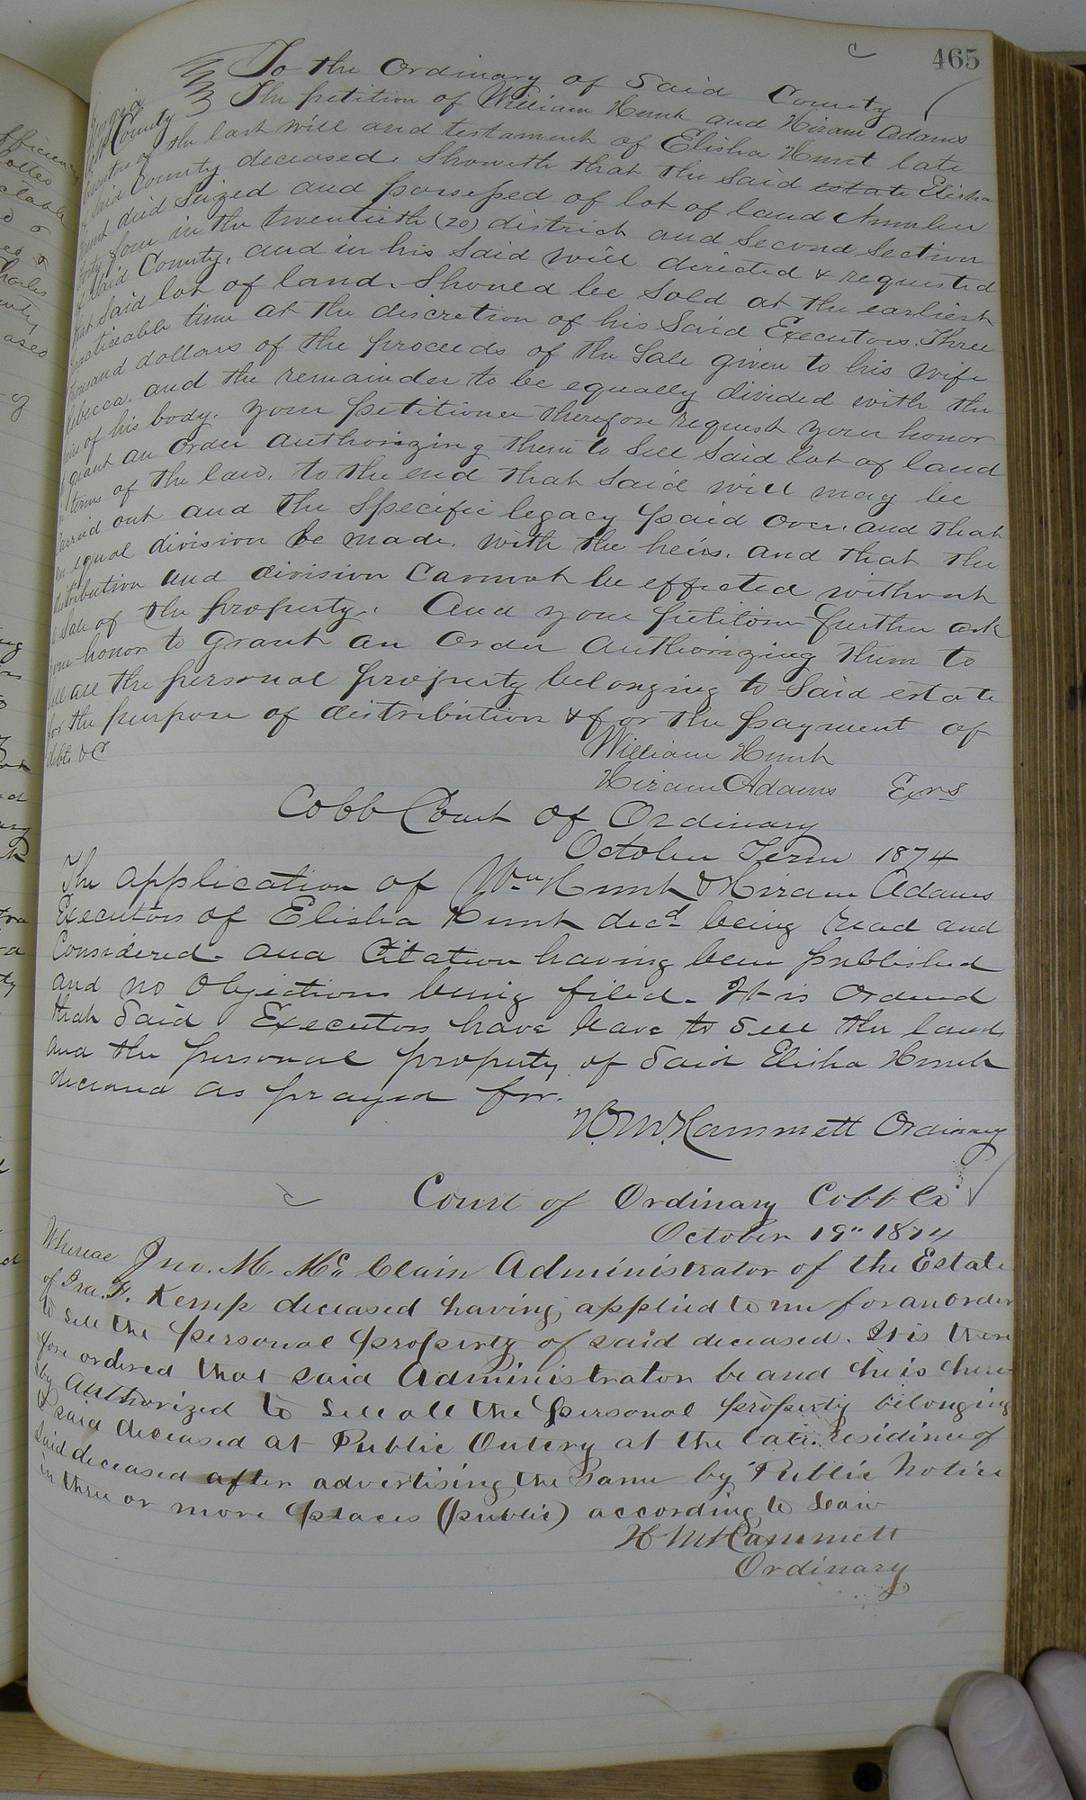 465
To the Ordinary of Said County
Georgia
Cobb County
The petition of William Hunt and Hiram Adams
Executors of the last will and testament of Elisha Hunt late
of Said County deceased. Showeth that the Said estate Elisha
Hunt died Seized and possessed of lot of land Number
Forty four in the twentieth (20) district and Second Section
of Said County, and in his Said will directed & requested
that Said lot of land Should be Sold at the earliest
practicable time at the discretion of his Said Executors. Three
thousand dollars of the proceeds of the Sale given to his wife
Rebecca. and the remainder to be equally divided with the
heirs of his body. Your petitioner therefore request your honor
to grant an Order authorizing them to Sell Said lot of land
in terms of the law. to the end that Said will may be
Carried out and the Specific legacy paid over. and that
an equal division be made. with the heirs. and that the
distribution and division Cannot be effected without
a Sale of the property. And your petitioner further ask
your honor to Grant an Order Authorizing them to
Sell all the personal property belonging to Said estate
for the purpose of distribution & for the payment of
debts &C
William Hunt
Hiram Adams Exrs
Cobb Court of Ordinary
October Term 1874
The application of Wm Hunt & Hiram Adams
Executors of Elisha Hunt decd being read and
Considered. and Citation having been published
and no Objections being filed. It is Ordered
that Said Executors have leave to Sell the land
and the personal property of Said Elisha Hunt
deceased as prayed for.
H. M. Hammett Ordinary
Court of Ordinary Cobb Co
October 19" 1874
Whereas Jno. M. McClain Administrator of the Estate
of Ira. F. Kemp deceased having applied to me for an order
to sell the personal property of said deceased. It is there
fore ordered that said Administrator be and he is here
by Authorized to Sell all the personal property belonging
to said deceased at Public Outcry at the late residence of
Said deceased after advertising the Same by Public Notice
in three or more places (public) according to Law
H M Hammett
Ordinary